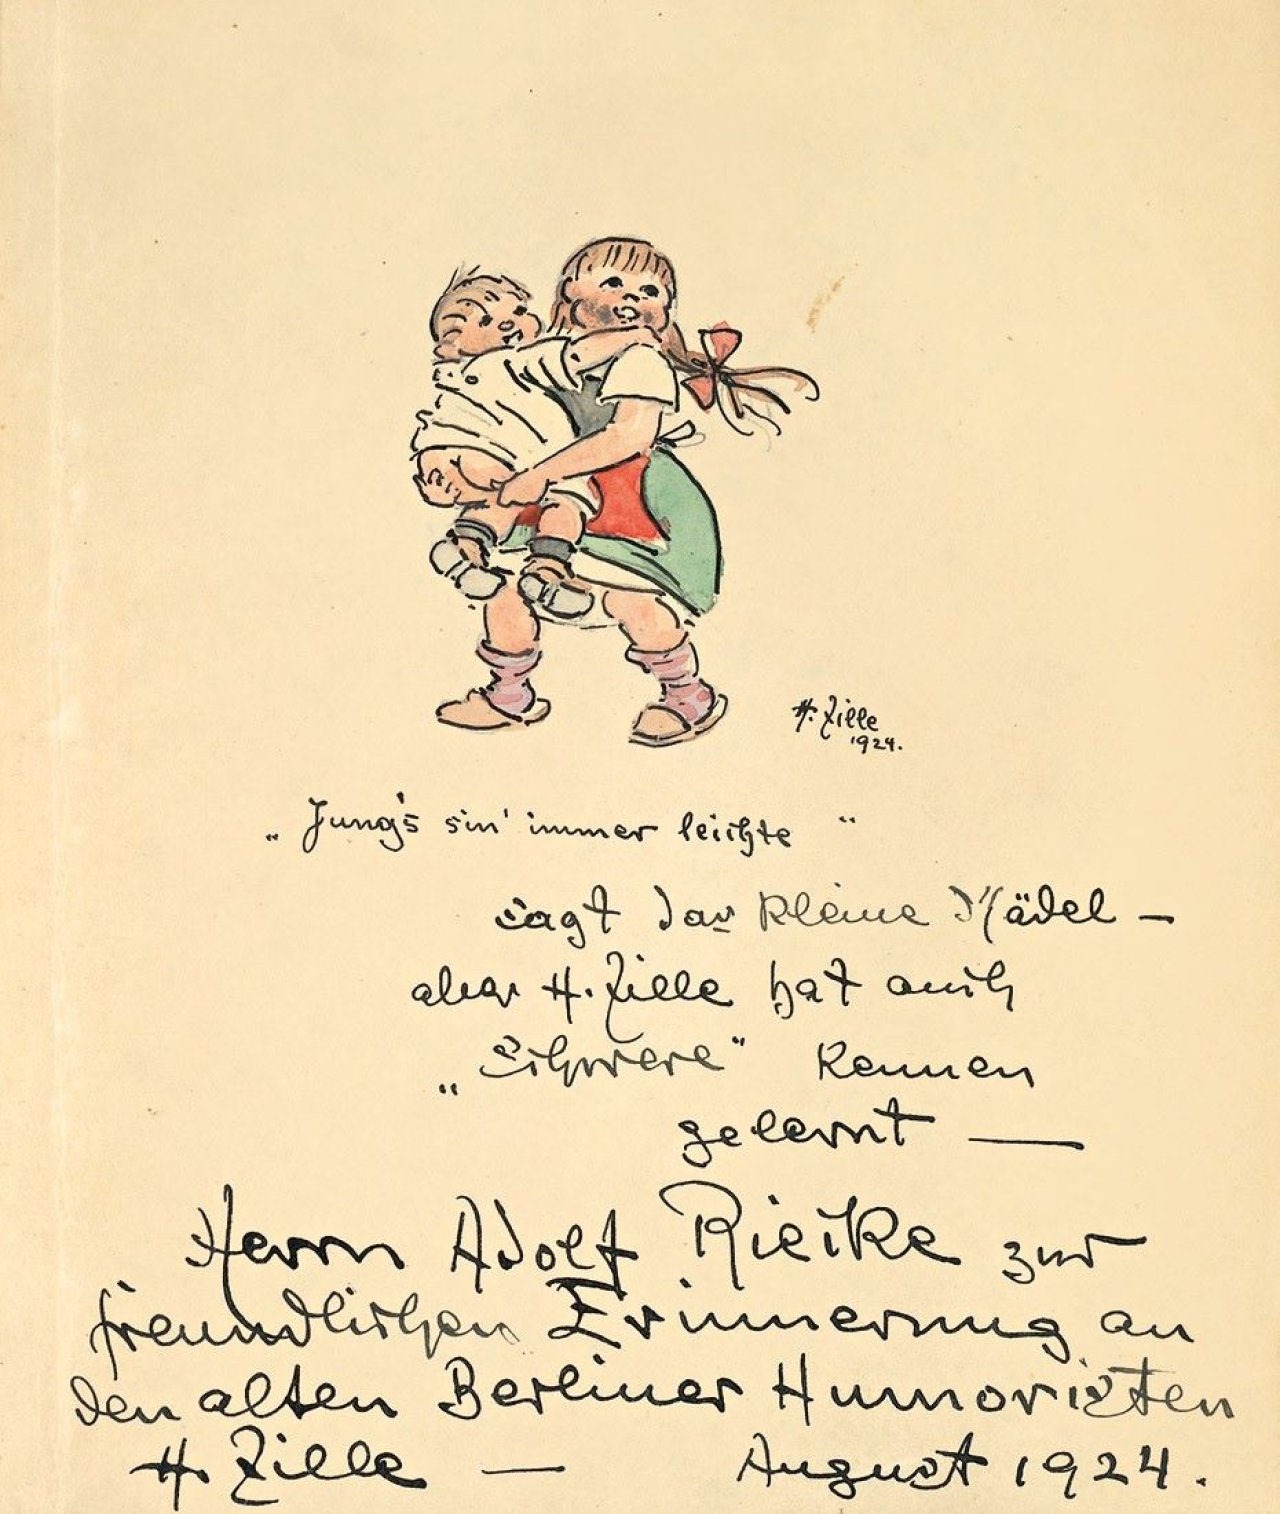 H. Zille
1924.
„Jung's sin' immer leichte“
sagt das kleine Mädel —
aber H. Zille hat auch
„Schwere“ kennen
gelernt —
Herrn Adolf Rieike zur
freundlichen Erinnerung an
den alten Berliner Humoristen
H. Zille — August 1924.